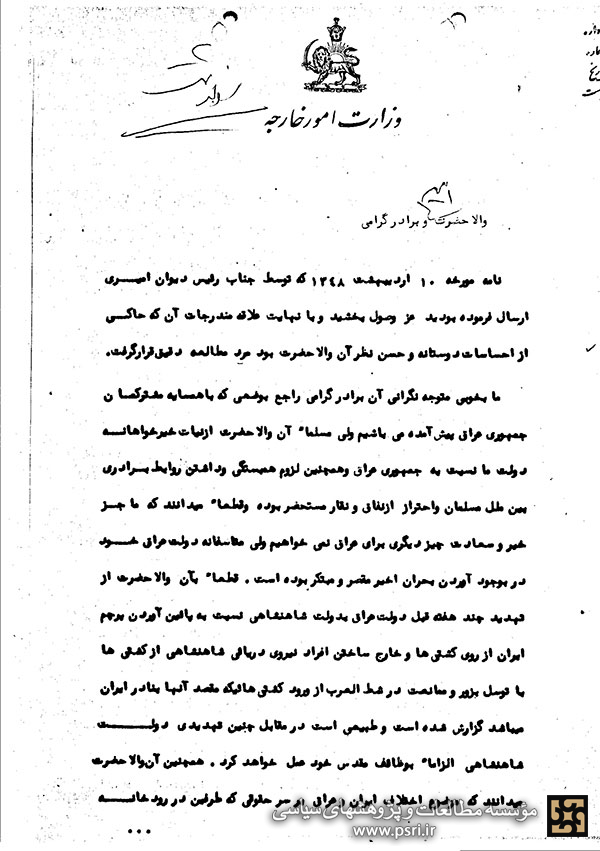 وزارت امور خارجه
والاحضرت و برادر گرامی
نامه مورخه ۱۰ اردیبهشت ۱۳۴۸ که توسط جناب رئیس دیوان امیری
ارسال فرموده بودید عز وصول بخشید و با نهایت علاقه مندرجات آن که حاکی
از احساسات دوستانه و حسن نظر آن والاحضرت بود مورد مطالعه دقیق قرار گرفت.
ما بخوبی متوجه نگرانی آن برادر گرامی راجع بوضعی که با همسایه مشترکمان
جمهوری عراق پیش آمده می باشیم ولی مسلماً آن والاحضرت از نیات خیرخواهانه
دولت ما نسبت به جمهوری عراق و همچنین لزوم همبستگی و داشتن روابط برادری
بین ملل مسلمان و احتراز از نفاق و نقار مستحضر بوده و قطعاً میدانند که ما جز
خیر و سعادت چیز دیگری برای عراق نمی خواهیم ولی متاسفانه دولت عراق خود
در بوجود آوردن بحران اخیر مقصر و مبتکر بوده است . قطعاً بآن والاحضرت از
تهدید چند هفته قبل دولت عراق بدولت شاهنشاهی نسبت به پائین آوردن پرچم
ایران از روی کشتی ها و خارج ساختن افراد نیروی دریائی شاهنشاهی از کشتی ها
با توسل بزور و ممانعت در شط العرب از ورود کشتی هائیکه مقصد آنها بنادر ایران
میباشد گزارش شده است و طبیعی است در مقابل چنین تهدیدی دولت
شاهنشاهی الزاماً بوظائف مقدس خود عمل خواهد کرد . همچنین آن والاحضرت
میدانند که موضوع اختلاف ایران و عراق بر سر حقوقی که طرفین در رودخانه
...
موسسه مطالعات و پژوهشهای سیاسی
www.psri.ir